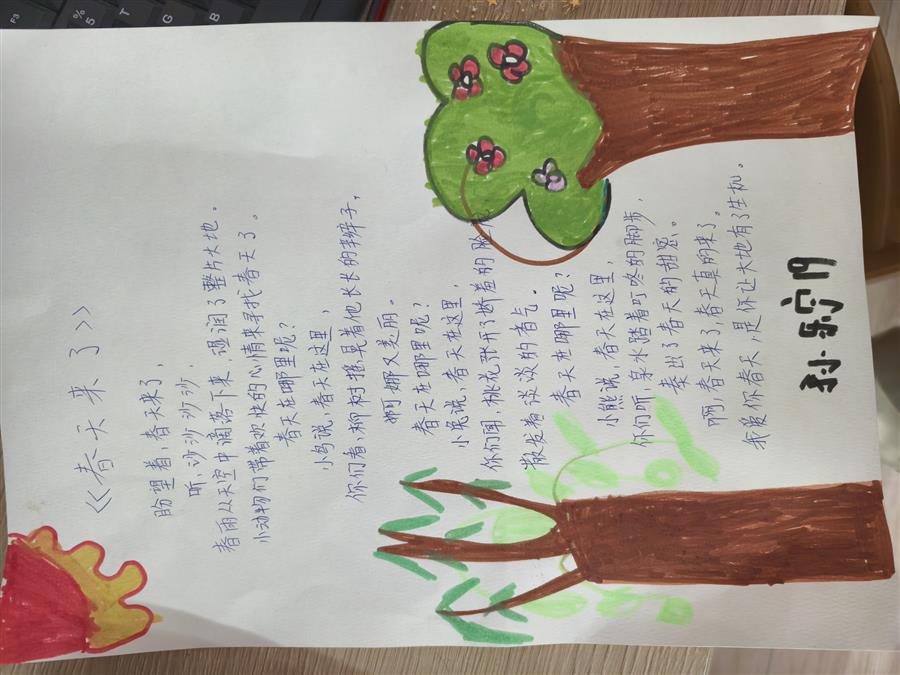 《春天来了》
盼望着,春天来了,
听,沙沙沙沙,
春雨从天空中滴落下来,湿润了整片大地。
小动物们带着欢快的心情来寻找春天了。
春天在哪里呢?
小鸟说,春天在这里,
你们看,柳树摇晃着他长长的辫子,
婀娜又美丽。
春天在哪里呢?
小兔说,春天在这里,
你们闻,桃花张开了娇羞的脸,
散发着淡淡的香气。
春天在哪里呢?
小熊说,春天在这里,
你们听,泉水踏着叮咚的脚步,
奏出了春天的甜蜜。
啊,春天来了,春天真的来了。
我爱你春天,是你让大地有了生机。
孙乐宁
F3
%
5
T
G
B